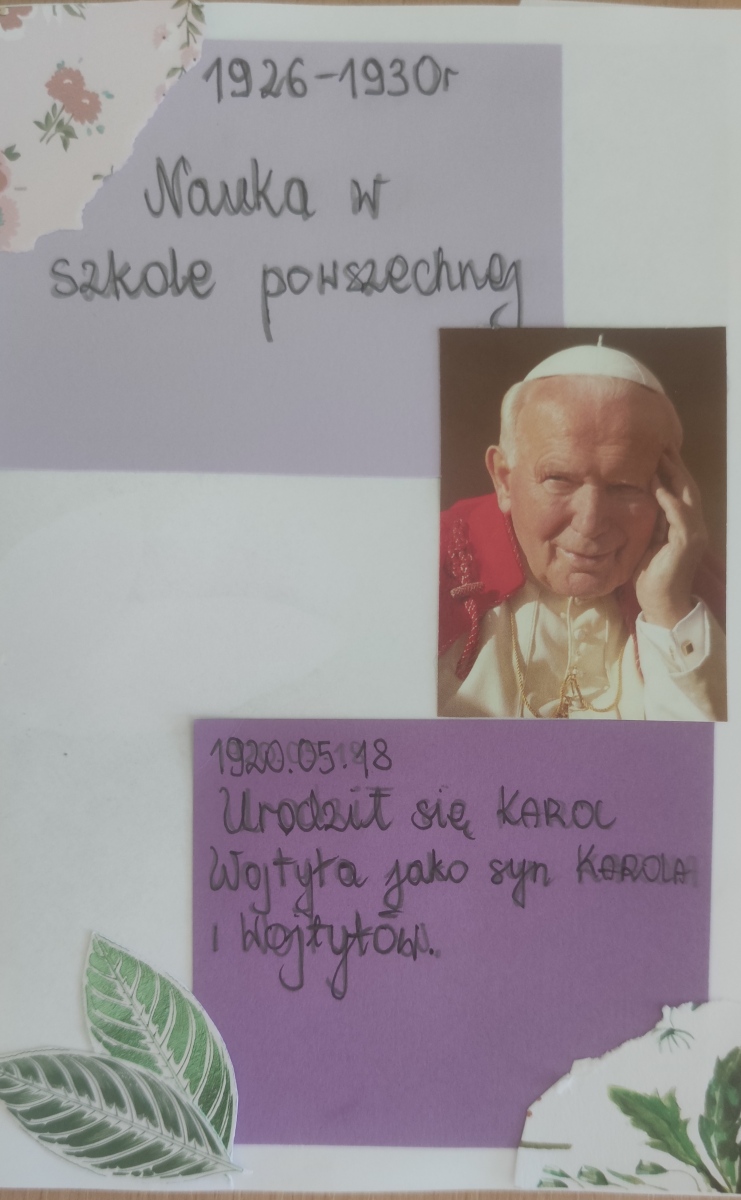 1926-1930r
Nauka w
szkole powszechnej
1920.05.18
Urodził się KAROL
Wojtyła jako syn KAROLA
i Wojtyłów.